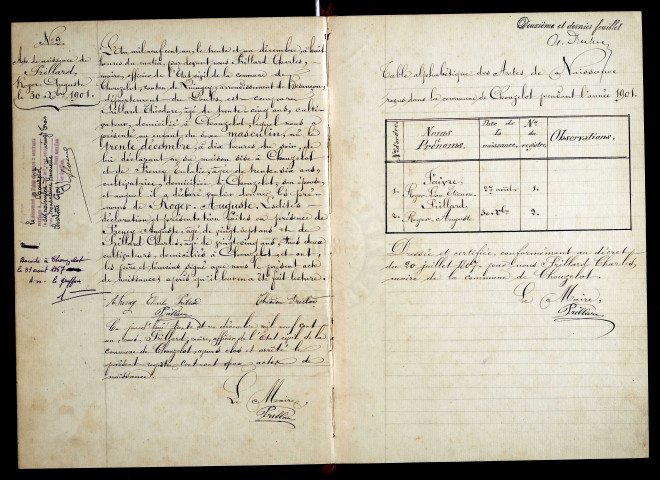 N° 2
Acte de naissance de
Prillard,
Roger-Auguste
le 30 Xbre 1901.
L'An mil neuf cent un, le trente et un décembre, à huit
heures du matin, par devant nous Prillard Charles,
maire, officier de l'Etat civil de la commune de
Chouzelot, canton de Quingey, arrondissement de Besançon,
département du Doubs, est comparu
Prillard Théodore, âgé de trente-cinq ans, culti-
vateur, domicilié à Chouzelot, lequel nous a
présenté un enfant du sexe masculin, né le
trente décembre, à dix heures du soir, de
lui déclarant, en sa maison sise à Chouzelot
et de Freney Eulalie, âgée de trente six ans,
cultivatrice, domiciliée à Chouzelot, son épouse,
et auquel il a déclaré vouloir donner les pré-
noms de Roger-Auguste. Lesdites
déclaration et présentation faites en présence de
Freney Auguste, âgé de vingt-sept ans et de
Prillard Charles, âgé de vingt cinq ans, tous deux
cultivateurs, domiciliés à Chouzelot, et ont,
les père et témoins signé avec nous le présent acte
de naissance après qu'il leur en a été fait lecture.
A. Freney Charles Prillard Théodore Prillard
Prillard
Ce jourd'hui trente et un décembre mil neuf cent
un, nous, Prillard, maire, officier de l'Etat civil de la
commune de Chouzelot, avons clos et arrêté le
présent registre, contenant deux actes de
naissance.
Le Maire,
Prillard
décédé à Chouzelot
le 31 août 1957
Le greffier
Deuxième et dernier feuillet
Table alphabétique des Actes de Naissance
reçus dans la commune de Chouzelot pendant l'année 1901.
N° d'ordre Noms et Prénoms. Date de la naissance. N° du registre Observations.
1. Faivre, Roger-Léon-Etienne 27 août 1.
2. Prillard Roger-Auguste 30 Xbre 2.
Dressée et certifiée, conformément au décret
du 20 juillet 1807, par nous Prillard Charles,
maire de la commune de Chouzelot.
Le Maire,
Prillard